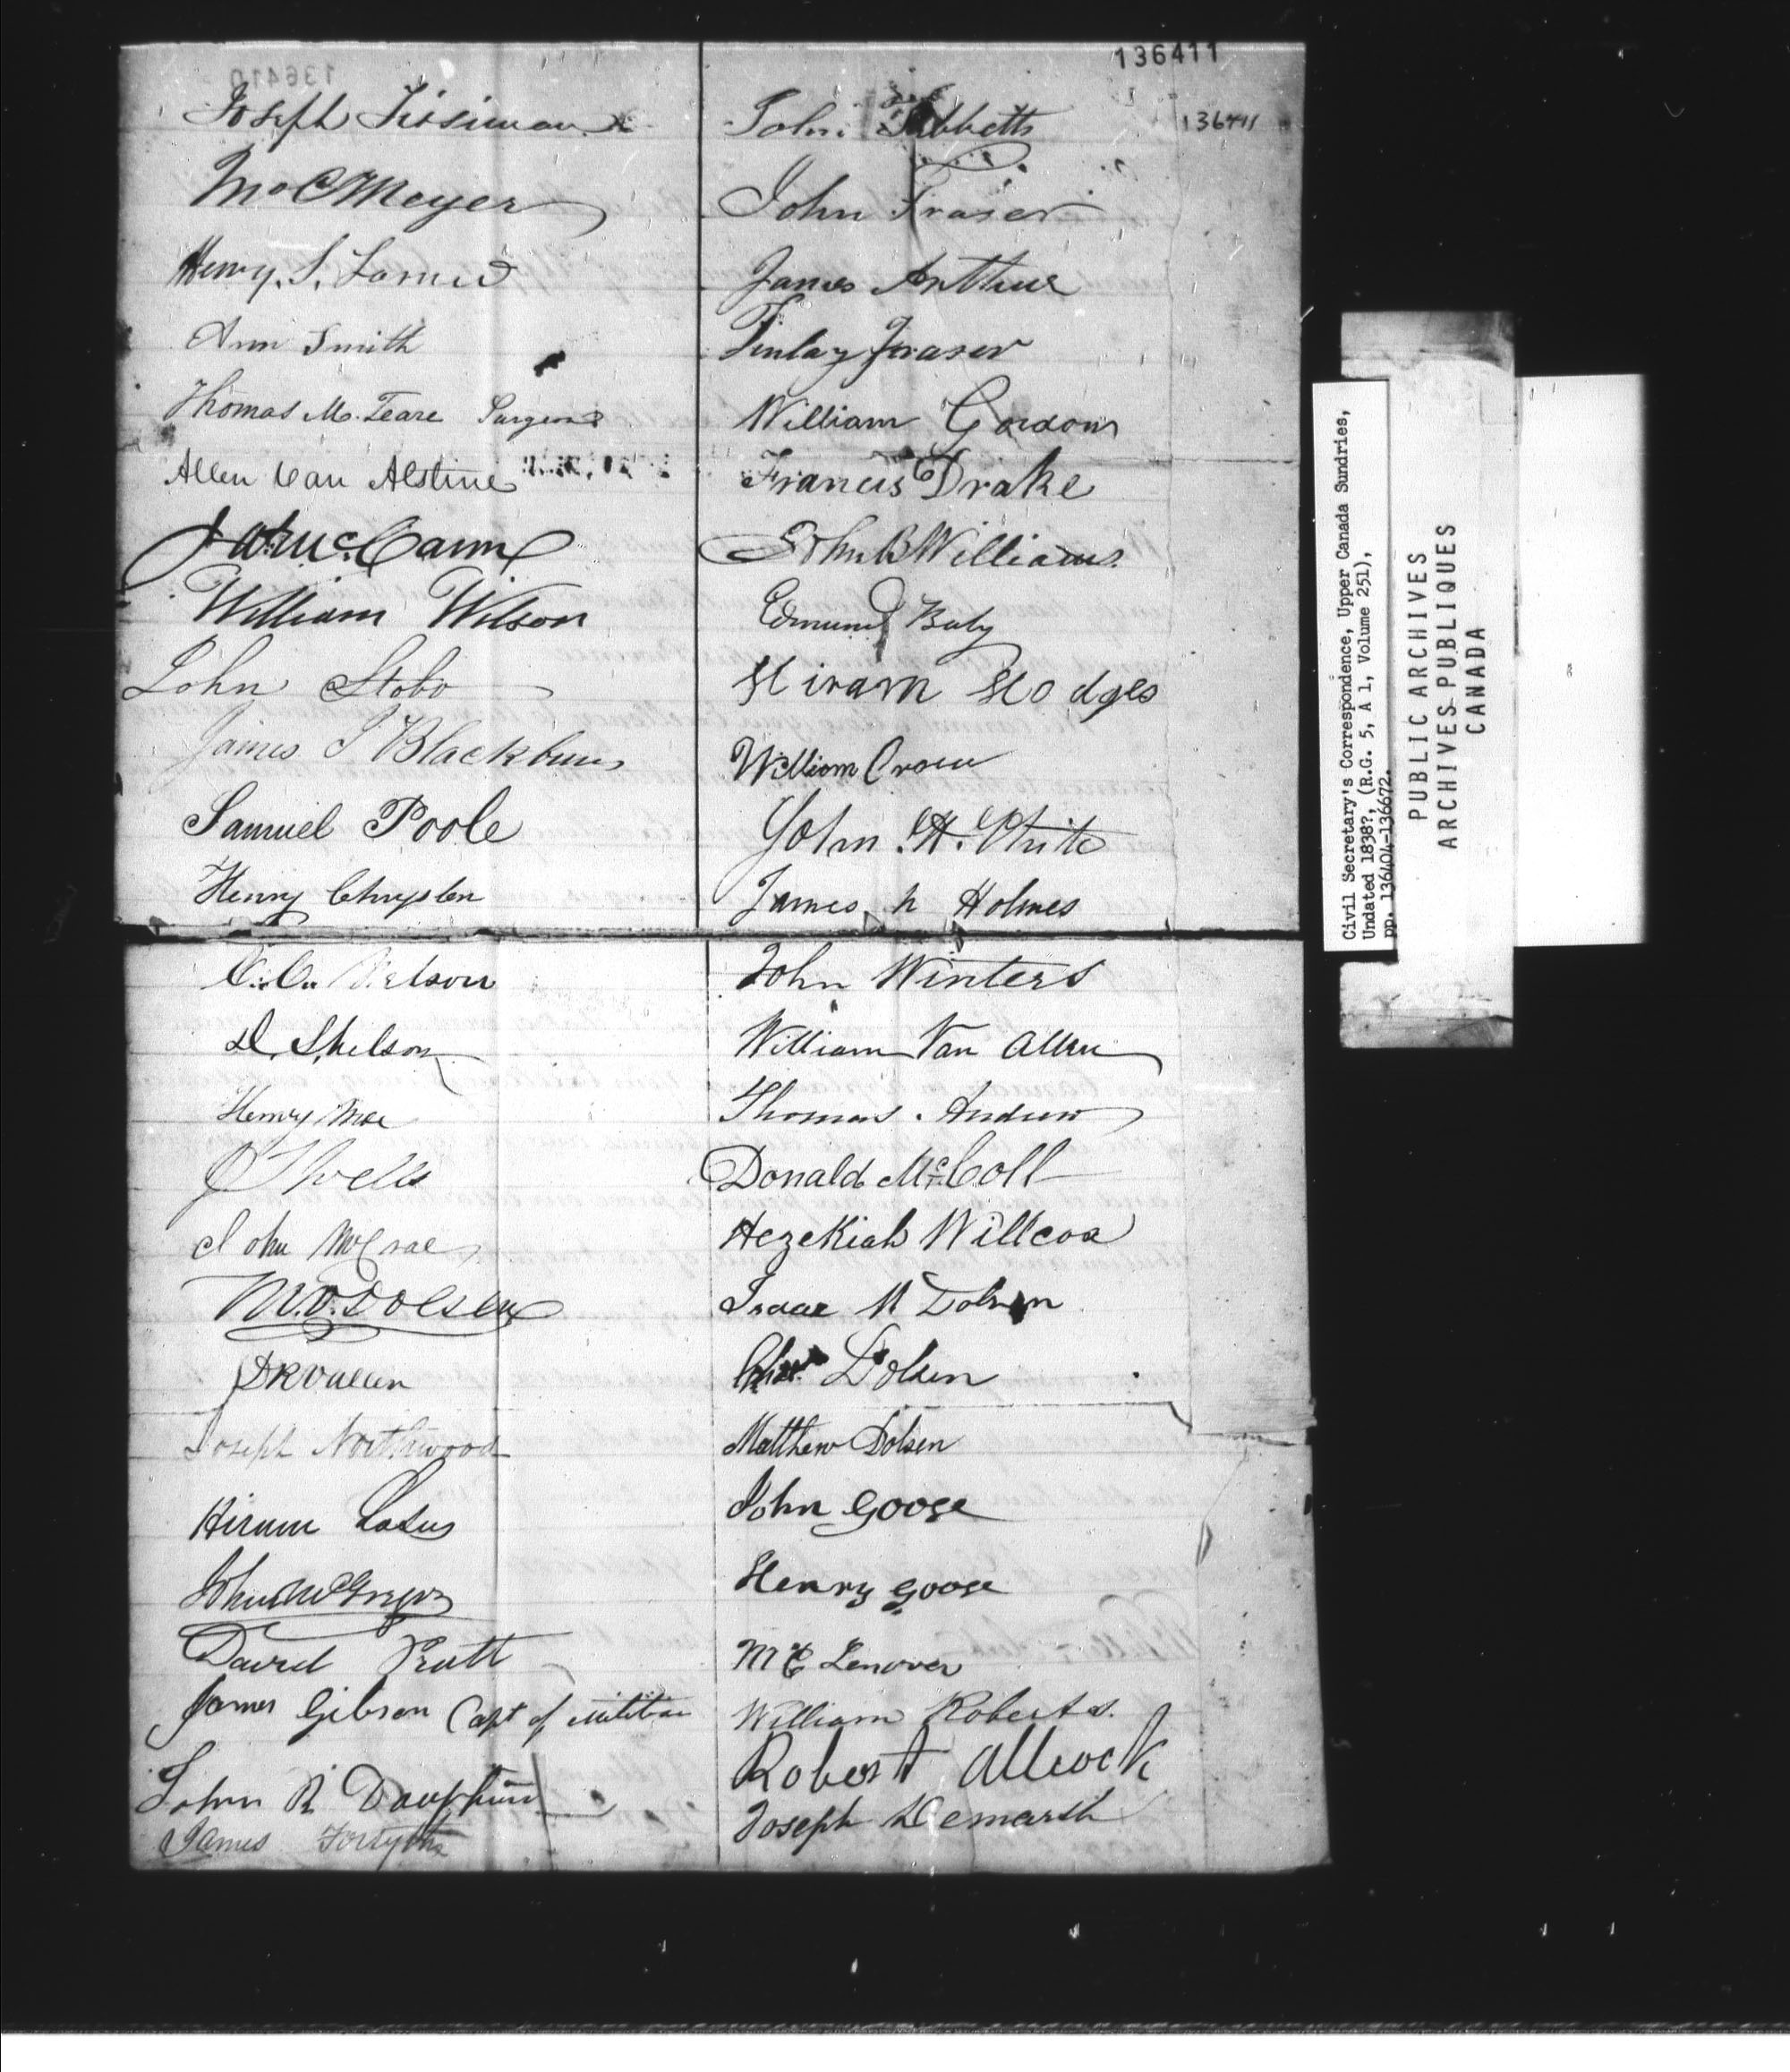 136411
136410
136411
Joseph Tissiman
Wm C Meyer
Henry. S. Larned
Ann Smith
Thomas M. Teare Surgeon
Allen Van Alstine
McCann
William Wilson
John Stobo
James Blackburn
Samuel Poole
Henry Chrysler
C. C. Nelson
D. Shelson
Henry Moe
Wells
John McCrae
M. D. Dolsen
D R Vallen
Joseph Northwood
Hiram
John McGregor
David Pratt
James Gibson Capt of Militia
John R Dauphin
James Forsythe
John Tibbetts
John Fraser
James Arthur
Finlay Fraser
William Gordon
Francis Drake
John B Williams.
Edmund Baby
Hiram Hodges
William Crow
John H. White
James n Holmes
John Winters
William Van Allen
Thomas Andrew
Donald McColl
Hezekiah Willcox
Isaac Dolsen
Dolsen
Matthew Dolsen
John Goose
Henry Goose
M C Lenover
William Roberts.
Robert Allcock
Joseph Demarsh
Civil Secretary's Correspondence, Upper Canada Sundries,
Undated 1838?, (R.G. 5, A 1, Volume 251),
pp. 136404-136672.
PUBLIC ARCHIVES
ARCHIVES PUBLIQUES
CANADA